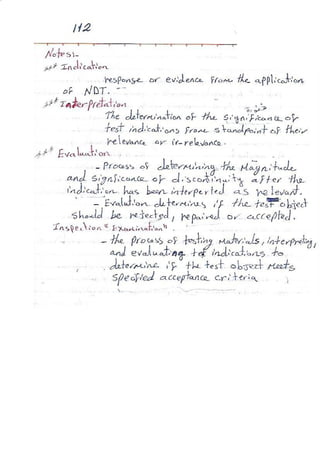 112
Notes:-
*** Indication
response or evidence from the application
of NDT.
*** Interpretation
The determination of the significance of
test indications from standpoint of their
relevance or ir-relevance.
*** Evaluation
- Process of determining the Magnitude
and significance of discontinuity after the
indication has been interperted as relevant.
- Evalution determines if the test object
should be rejected, repaired or accepted.
Inspection "Examination"
- the process of testing Materials, interpreting,
and evaluating test indications to
determine if the test object Meets
Specified acceptance criteria